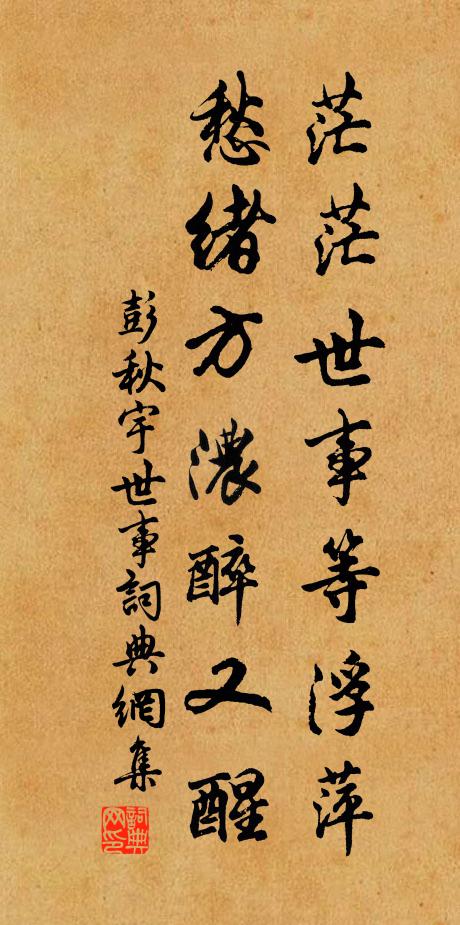 茫茫世事等浮萍
愁緒方濃醉又醒
彭秋宇世事詞典網集
詞典网印